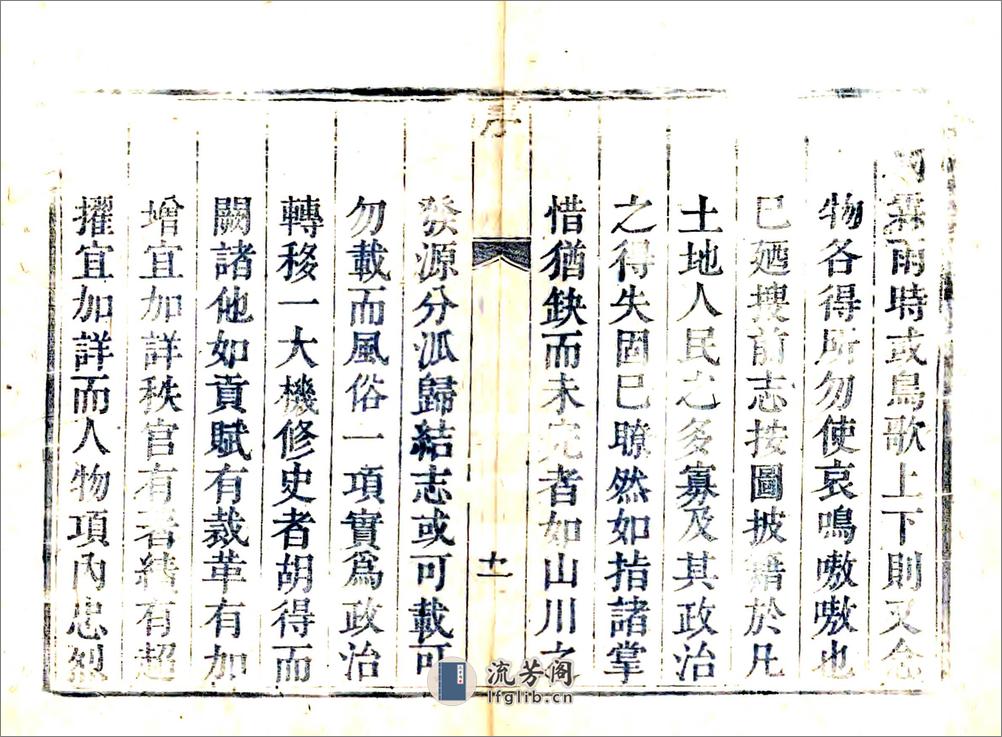 霖雨時或鳥歌上下則又念
物各得所勿使哀鳴嗷嗷也
已廼搜前志按圖披籍於凡
土地人民之多寡及其政治
之得失固已瞭然如指諸掌
惜猶缺而未完者如山川之
序
十一
發源分派歸結志或可載可
勿載而風俗一項實爲政治
轉移一大機修史者胡得而
闕諸他如貢賦有裁革有加
增宜加詳秩官有著績有超
擢宜加詳而人物項內忠烈
流芳阁
lfglib.cn